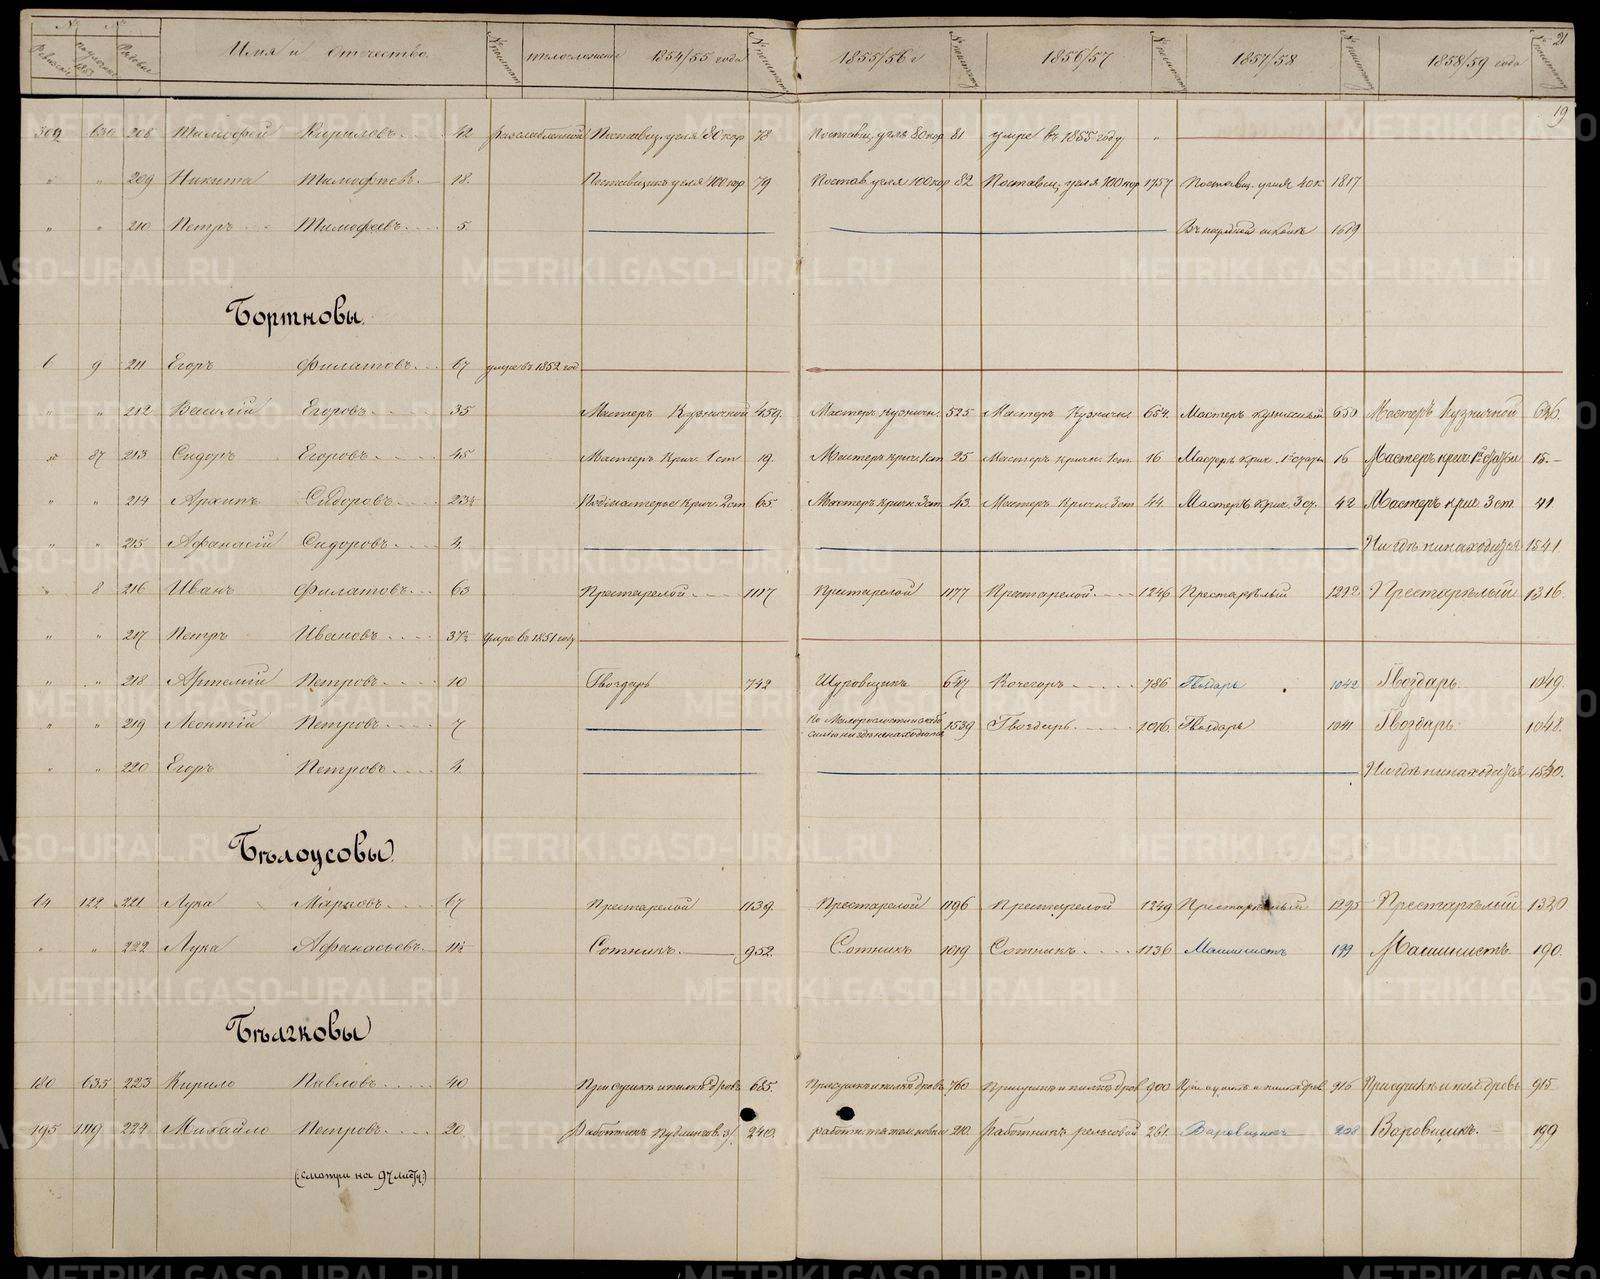 № № Имя и отчество № телосложение 1854/55 года 1855/56 г 1856/57 1857/58 1858/59 года 21
19
309 630 208 Тимофей Кириловъ 42 Разслабленной Поставщ. угля 80 кор 78 Поставщ. угля 80 кор 81 умре въ 1855 году "
" " 209 Никита Тимофеевъ 18. Поставщикъ угля 100 кор 79 Постав угля 100 кор 82 Поставщ. угля 100 кор 1757 Поставщ. угля 40 к 1817
" " 210 Петръ Тимофеевъ 5. Въ народной школе 1619
Бортновы.
6 9 211 Егоръ Филатовъ 67 умре въ 1852 год
" " 212 Василій Егоровъ 35 Мастеръ Кузничной 459. Мастеръ кузничн. 525 Мастеръ Кузничн 654. Мастеръ кузничный 650 Мастеръ Кузничной 636.
87 213 Сидоръ Егоровъ 45 Мастеръ Крич. 1 ст 19. Мастеръ крич. 1 ст 25 Мастеръ кричн. 1 ст. 16 Мастеръ крич. 16 Мастеръ крич 15.
" " 214 Архипъ Сидоровъ 23¾ Подмастерье Крич. 2 ст 65. Мастеръ Кричн. 3 ст. 43. Мастеръ Кричн. 3 ст. 44. Мастеръ Крич. 3 ст. 42 Мастеръ крич. 3 ст 41
" " 215 Афанасій Сидоровъ 4. Нигдѣ ненаходится 1541.
8 216 Иванъ Филатовъ 63 Престарелой 1117 Престарелой 1177 Престарелой 1246 Престарѣлый 1292. Престарѣлый 1316.
" " 217 Петръ Ивановъ 37½ умре въ 1851 году
" " 218 Артемій Петровъ 10 Гвоздарь 742 Шуровщикъ 647 Кочегаръ 786 Гвоздарь 1042 Гвоздарь 1049.
" " 219 Леонтій Петровъ 7 По Малорослости и слабосилію нигде ненаходится 1539 Гвоздарь 1016. Гвоздарь 1041 Гвоздарь 1048.
" " 220 Егоръ Петровъ 4. Нигдѣ ненаходится 1540.
Бѣлоусовы.
14 122 221 Лука Марковъ 67 Престарелой 1139. Престарелой 1196 Престарелой 1249 Престарѣлый 1295 Престарѣлый 1320
" " 222 Лука Афанасьевъ 11½ Сотникъ. 952. Сотникъ 1019 Сотникъ 1136 Машинистъ 199 Машинистъ 190.
Бѣлячковы
180 635 223 Кирило Павловъ 40 При сушкѣ и пилкѣ дровъ 685. При сушкѣ и пилкѣ дровъ 760 При сушкѣ и пилкѣ дров 900 При сушкѣ и пилкѣ дров 916 При сушкѣ и пил. дровъ 915
195 1119 224 Михайло Петровъ 20. Работникъ Пудлингов. 240. работн. 210. Работникъ рельсовой 261. Варовщикъ 208 Варовщикъ. 199
(смотри на 97 листѣ)
METRIKI.GASO-URAL.RU